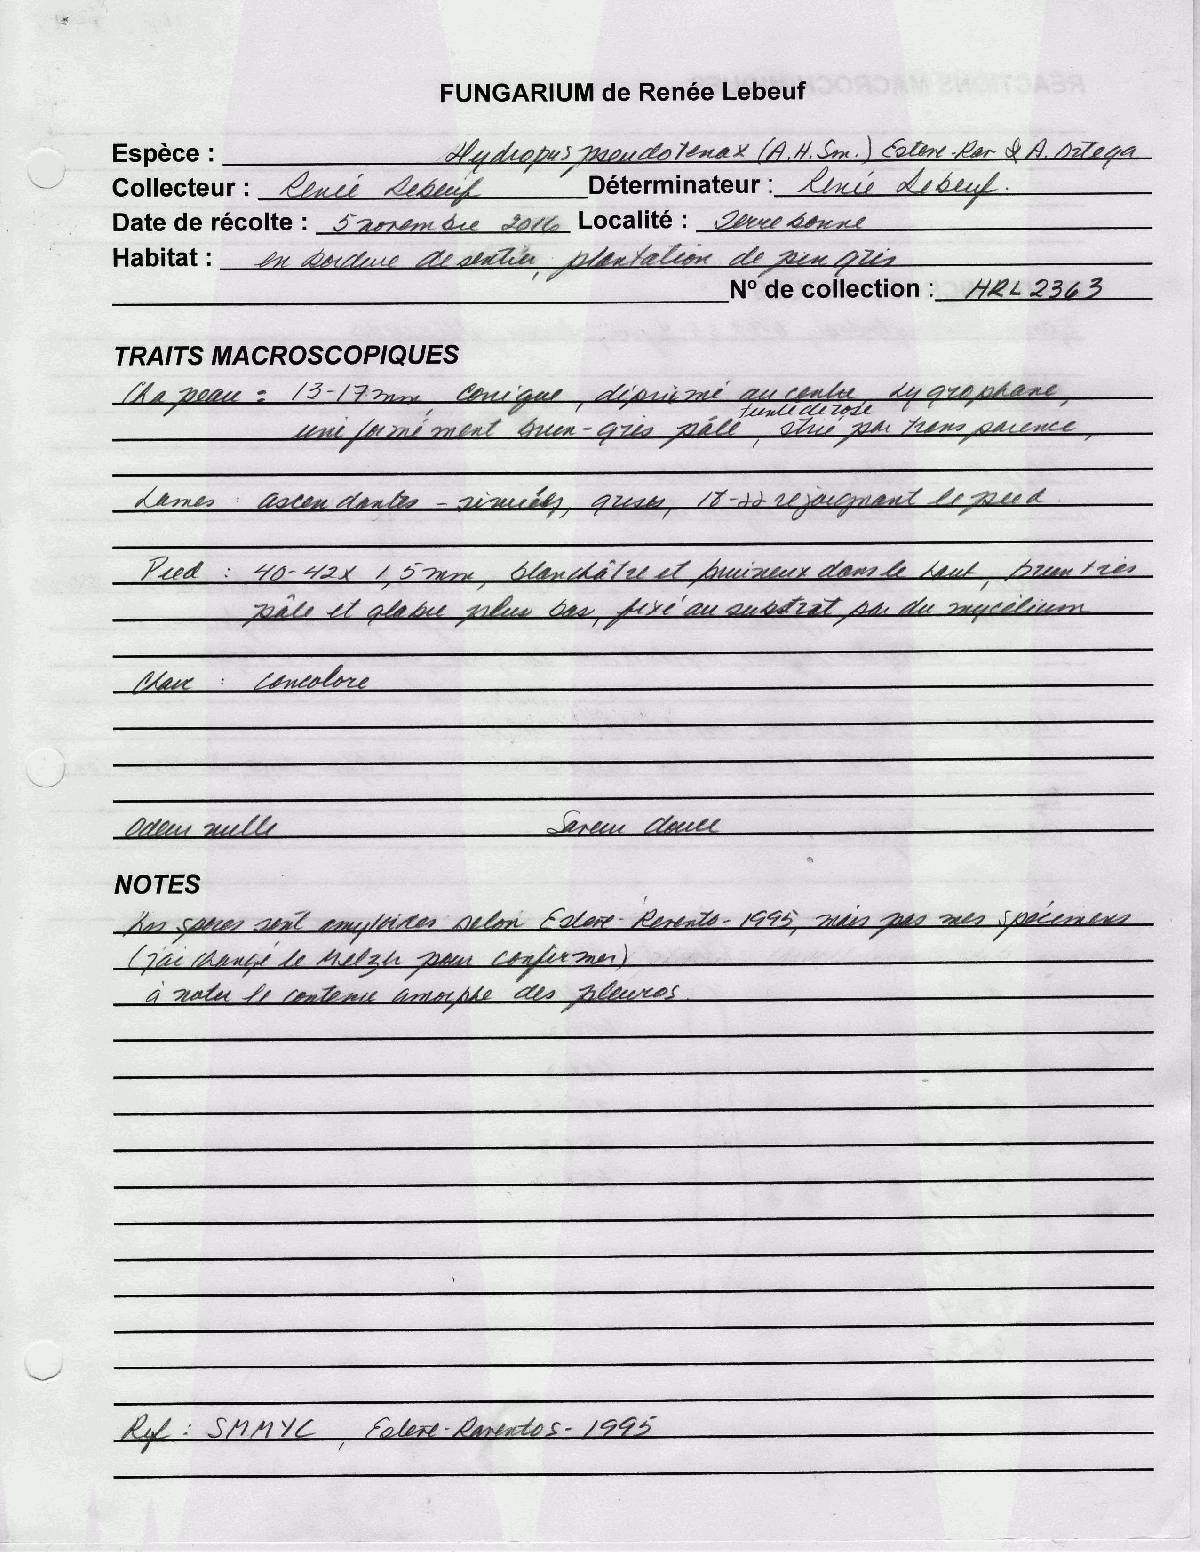 FUNGARIUM de Renée Lebeuf
Espèce : Hydropus pseudotenax (A.H. Sm.) Esteve-Rav & A. Ortega
Collecteur : Renée Lebeuf Déterminateur : Renée Lebeuf.
Date de récolte : 5 novembre 2016 Localité : Terrebonne
Habitat : en bordure de sentier, plantation de pin gris
Nº de collection : HRL2363
TRAITS MACROSCOPIQUES
Chapeau : 13-17 mm, conique, déprimé au centre, hygrophane,
teinté de rose
uniformément brun-gris pâle, strié par transparence,
Lames : ascendantes - sinuées, grises, 18-22 rejoignant le pied.
Pied : 40-42 x 1,5 mm, blanchâtre et pruineux dans le haut, brun très
pâle et glabre plus bas, fixé au substrat par du mycélium
Chair : concolore
Odeur nulle Saveur douce
NOTES
Les spores sont amyloïdes selon Esteve-Raventos-1995, mais pas mes spécimens
(j'ai changé le Melzer pour confirmer)
à noter le contenu amorphe des pleuros.
Réf : SMMYC, Esteve-Raventos-1995